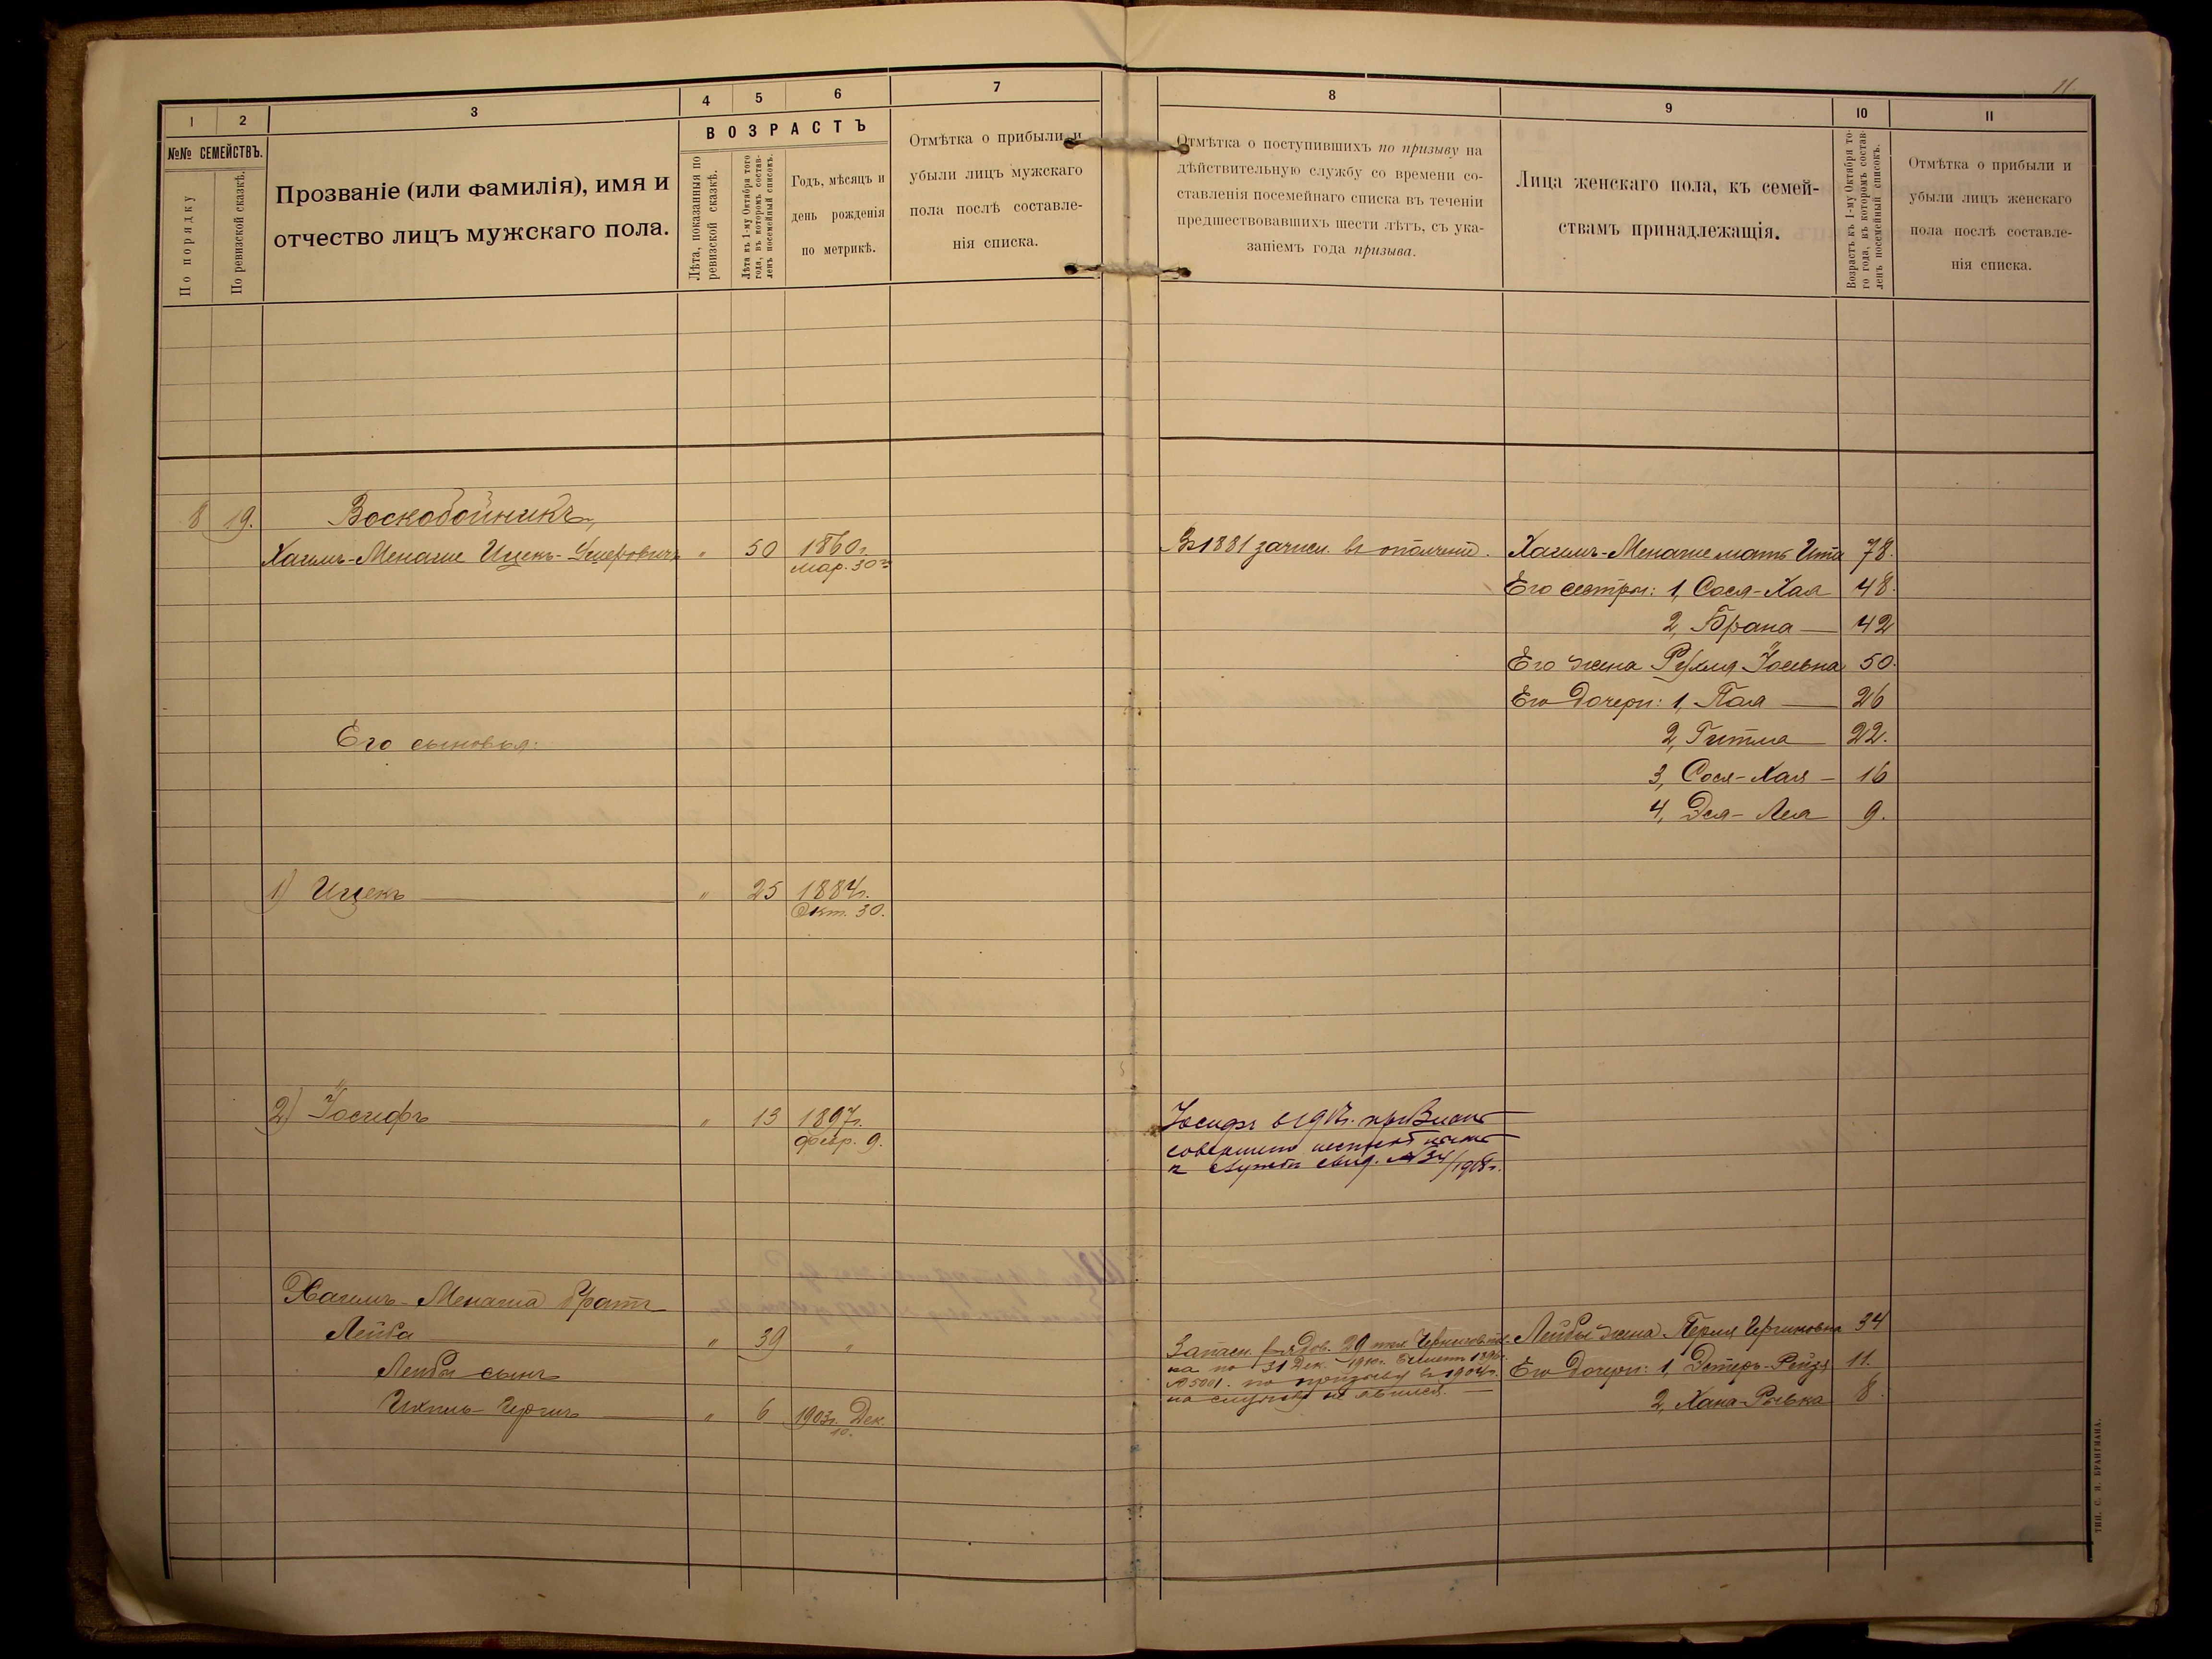 11
1
2
3
4
5
6
7
8
9
10
11
№№ СЕМЕЙСТВЪ.
По порядку
По ревизской сказкѣ.
Прозваніе (или фамилія), имя и
отчество лицъ мужскаго пола.
ВОЗРАСТЪ
Лѣта, показанныя по
ревизской сказкѣ.
Лѣта къ 1-му Октября того
года, въ которомъ состав-
ленъ посемейный списокъ.
Годъ, мѣсяцъ и
день рожденія
по метрикѣ.
Отмѣтка о прибыли и
убыли лицъ мужскаго
пола послѣ составле-
нія списка.
Отмѣтка о поступившихъ по призыву на
дѣйствительную службу со времени со-
ставленія посемейнаго списка въ теченіи
предшествовавшихъ шести лѣтъ, съ ука-
заніемъ года призыва.
Лица женскаго пола, къ семей-
ствамъ принадлежащія.
Возрастъ къ 1-му Октября то-
го года, въ которомъ состав-
ленъ посемейный списокъ.
Отмѣтка о прибыли и
убыли лицъ женскаго
пола послѣ составле-
нія списка.
8 19. Воскобойникъ,
Хаимъ-Менаше Ицекъ-Умеровичъ " 50 1860г.
мар. 30го
Его сыновья:
1) Ицекъ " 25 1884г.
Окт. 30.
2) Іосифъ " 13 1897г.
февр. 9.
Хаимъ-Менаша братъ
Лейба " 39 "
Лейбы сынъ
Ихиль- " 6 1903г. Дек.
10.
Въ 1881 зачисл. въ ополченіе.
Іосифъ в 1917г. признанъ
совершенно неспособнымъ
к службѣ свид. №34/1918г.
Запасн. рядов. 29 пѣх. Черниговск. пол-
ка по 31 Дек. 1910г. билетъ 1896г.
№5001. по призыву въ 1904г.
на службу не явился.
Хаимъ-Менаше мать Ита 78.
Его сестры: 1, Сося-Хая 48.
2, Брана 42
Его жена Рухля Іосевна 50.
Его дочери: 1, Поля 26
2, Гитла 22.
3, Сося-Хая 16
4, Эся-Лея 9.
Лейбы жена Перля 34
Его дочери: 1, Эстеръ-Рейзя 11.
2, Хана-Рывка 8.
ТИП. С. Н. БРАНТМАНА.